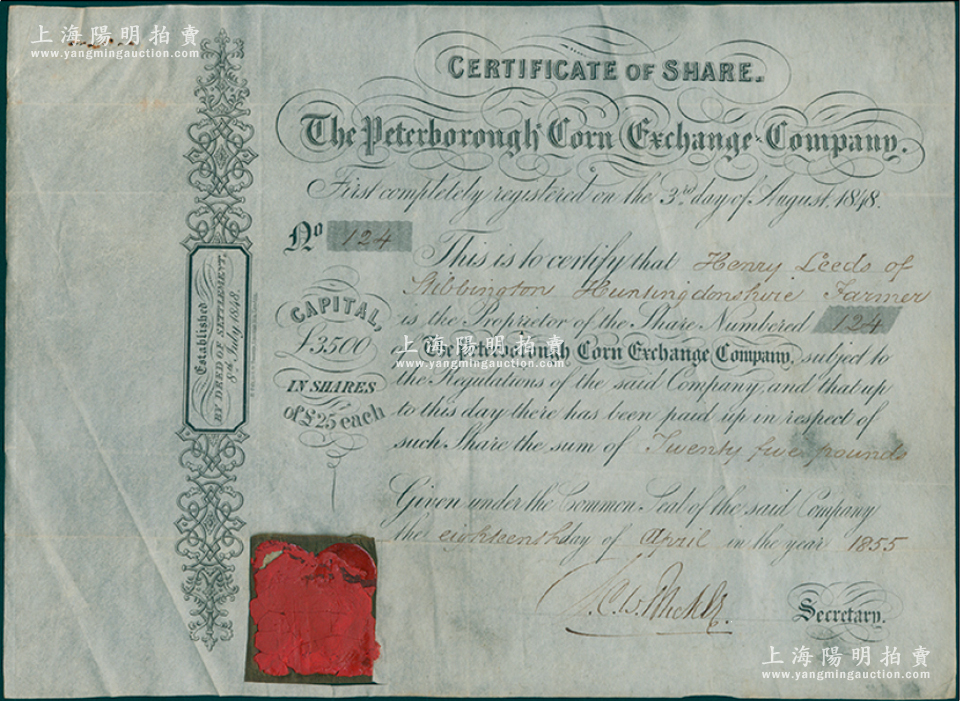 上海陽明拍賣
www.yangmingauction.com
CERTIFICATE OF SHARE.
The Peterborough Corn Exchange Company.
First completely registered on the 3rd day of August, 1848.
No 124
This is to certify that Henry Leeds of
Stibbington Huntingdonshire Farmer
is the Proprietor of the Share Numbered 124
in The Peterborough Corn Exchange Company, subject to
the Regulations of the said Company, and that up
to this day there has been paid up in respect of
such Share the sum of Twenty five pounds
CAPITAL,
£3500
IN SHARES
of £25 each
Established
BY DEED OF SETTLEMENT,
8th July 1848.
上海陽明拍賣
www.yangmingauction.com
Given under the Common Seal of the said Company
the eighteenth day of April in the year 1855
Secretary.
上海陽明拍賣
www.yangmingauction.com